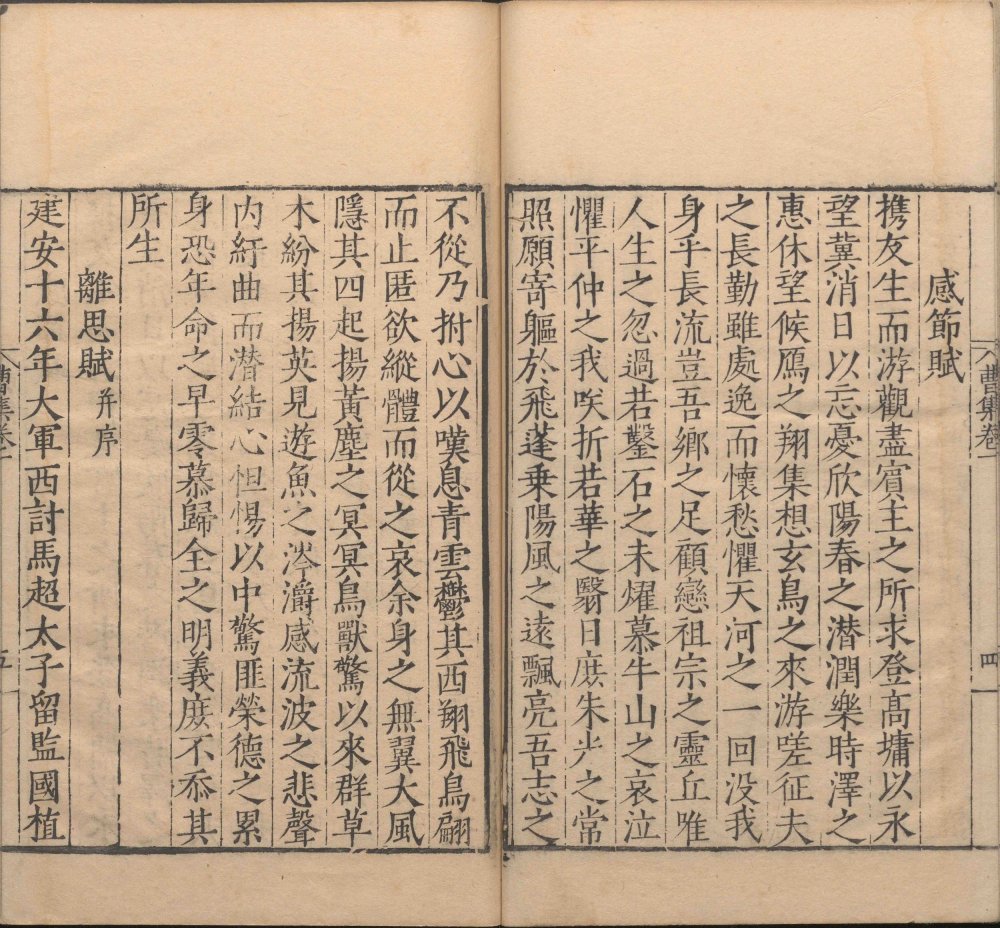 曹集卷
四
感節賦
携友生而游觀盡賓主之所求登高墉以永
望冀消日以忘憂欣陽春之潜潤樂時澤之
惠休望候鴈之翔集想玄鳥之來游嗟征夫
之長勤雖處逸而懷愁懼天河之一回没我
身乎長流豈吾鄉之足顧戀祖宗之靈丘唯
人生之忽過若鑿石之未燿慕牛山之哀泣
懼平仲之我咲折若華之翳日庶朱光之常
照願寄軀於飛蓬乗陽風之逺飄亮吾志之
不從乃拊心以嘆息青雲鬱其西翔飛鳥翩
而止匿欲縱體而從之哀余身之無翼大風
隱其四起揚黃塵之冥冥鳥獸驚以來群草
木紛其揚英見遊魚之涔灂感流波之悲聲
内紆曲而潜結心怛惕以中驚匪榮德之累
身恐年命之早零慕歸全之明義庶不忝其
所生
離思賦并序
建安十六年大軍西討馬超太子留監國植
曹集卷
五